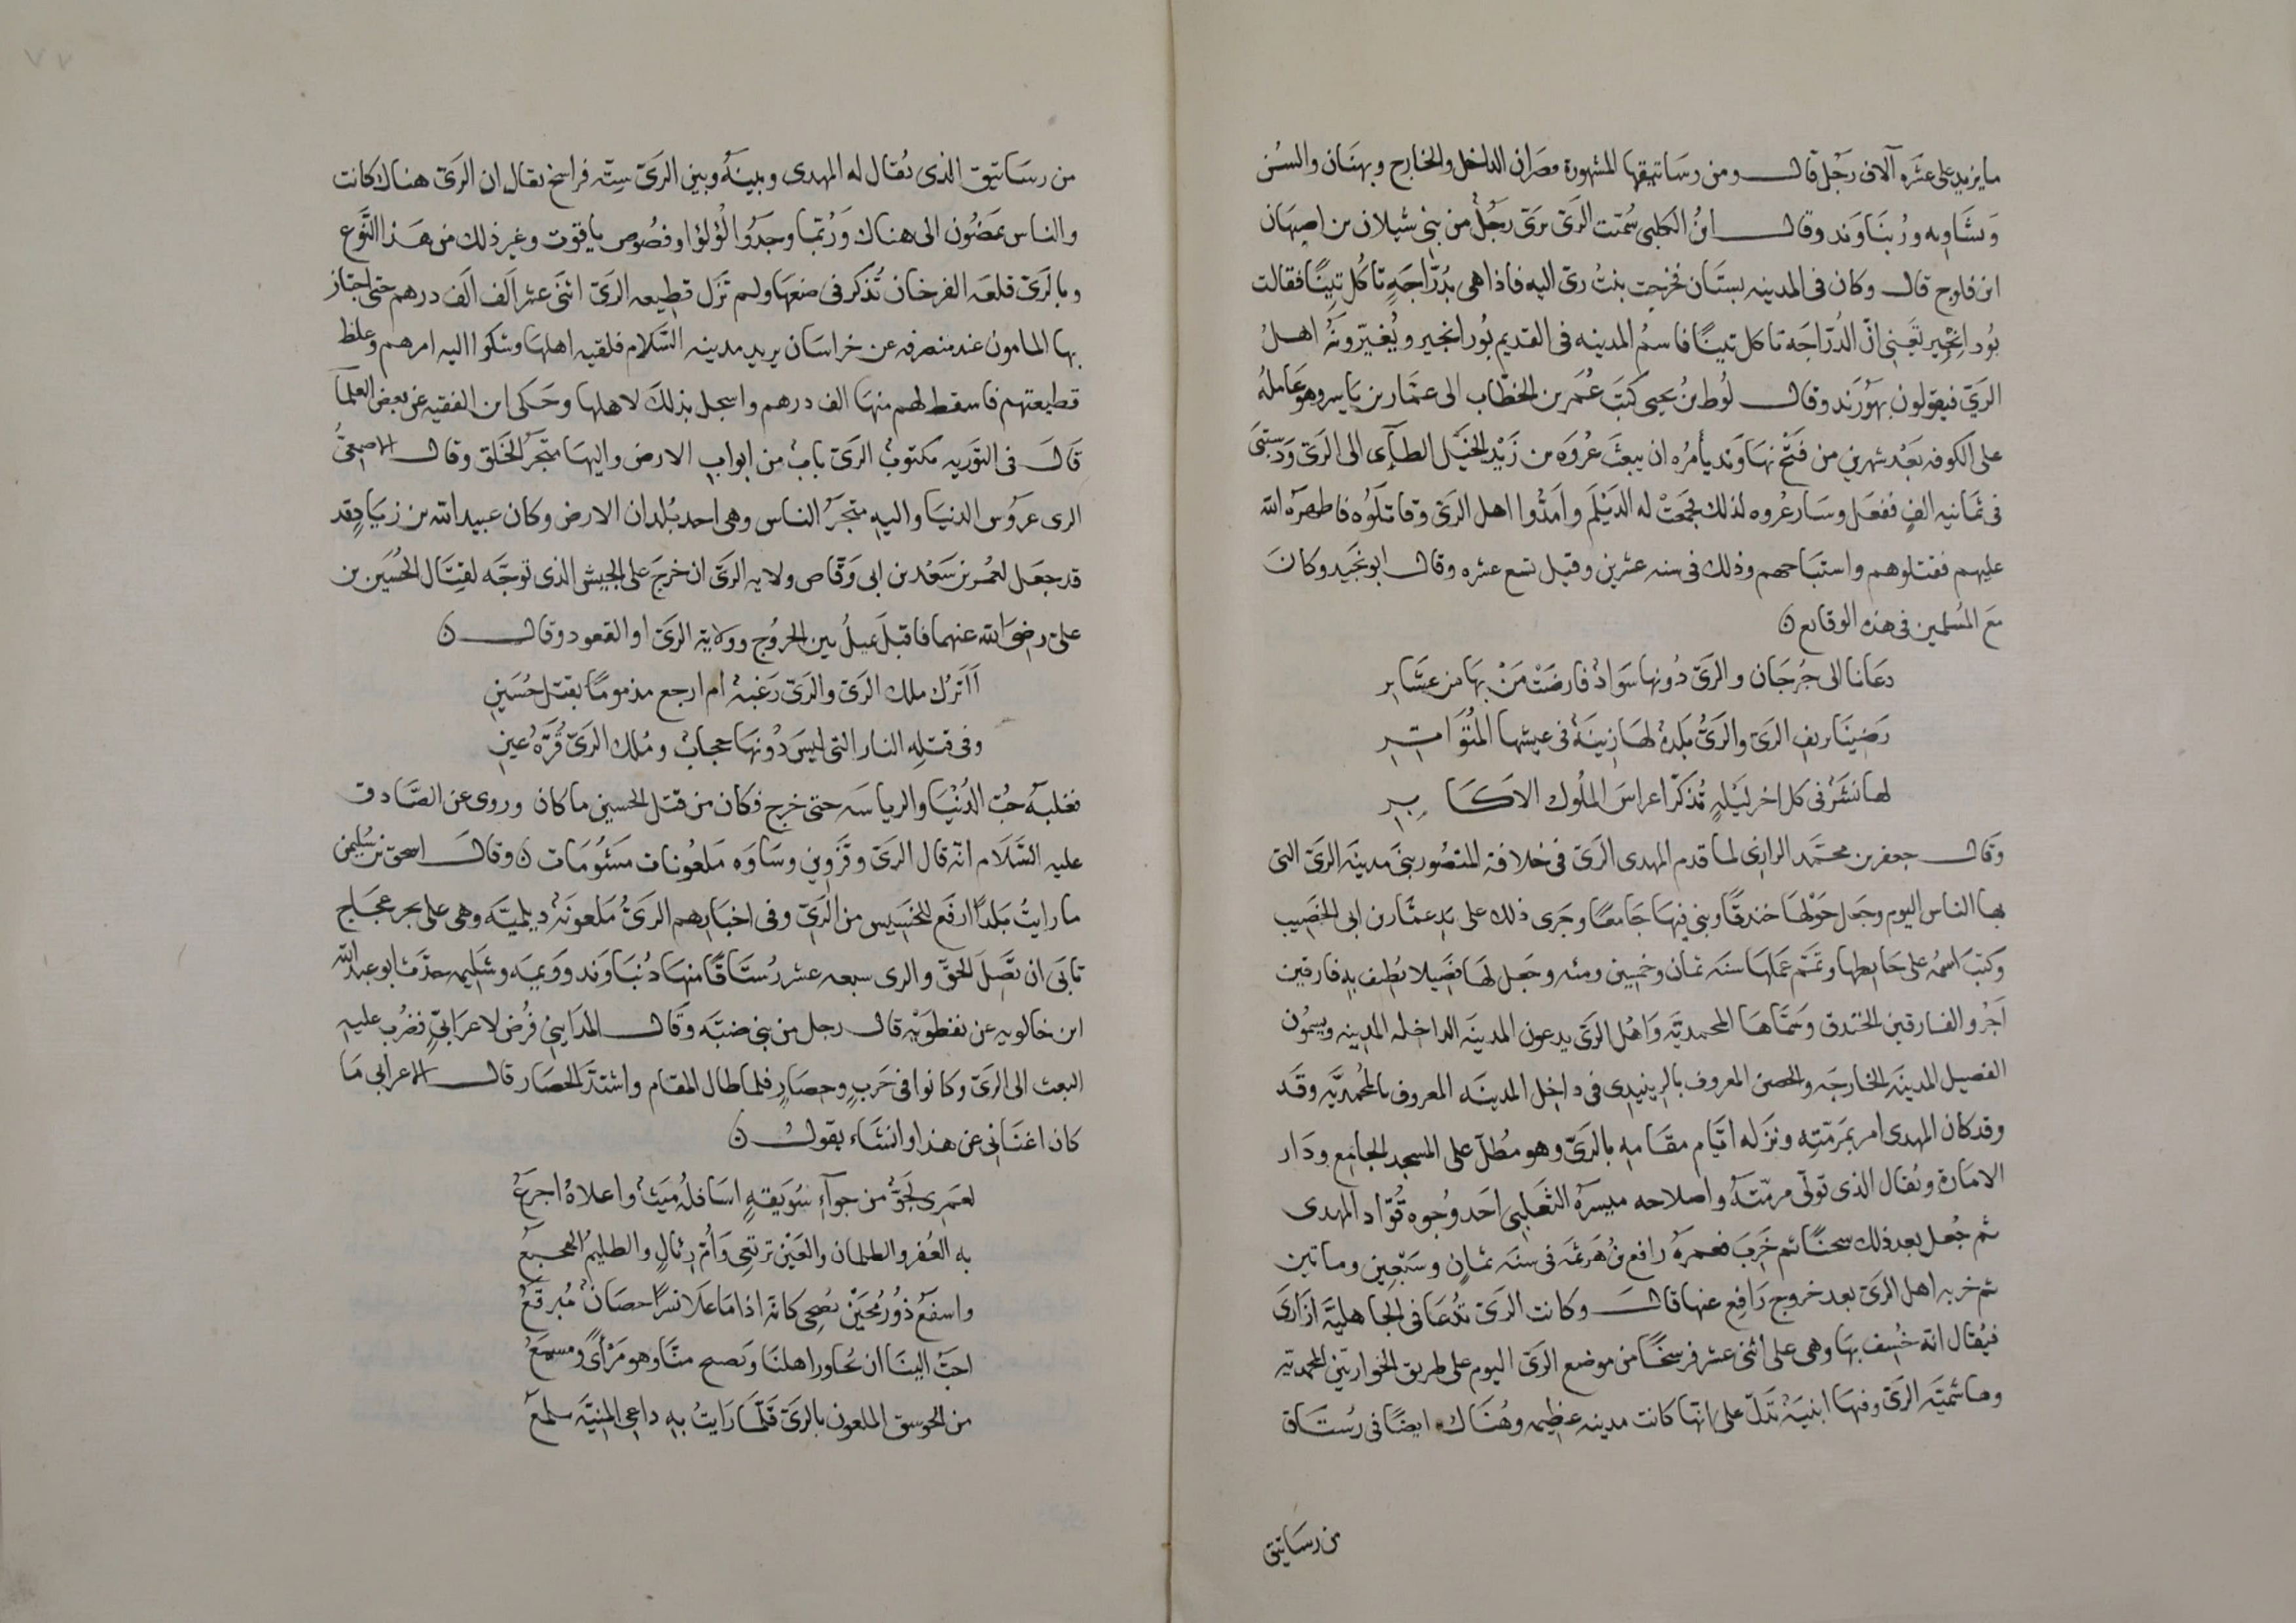 ما يزيد على عشره آلاف رجل قال ومن رساتيقها المشهورة قصران الداخل والخارج وبهنان والسن
وبشاويه ودنباوند وقال ابن الكلبي سميت الرى برى رجل من بني شيلان بن اصبهان
ابن فلوج قال وكان في المدينه بستان فخرجت بنت رى اليه فاذا هى بدراجة تاكل تينا فقالت
بُور انجير تعني ان الدراجه تاكل تينا فاسم المدينه في القديم بُور انجير ويغيرونه اهل
الرى فيقولون بهورند وقال لوط بن يحيى كتب عمر بن الخطاب الى عمار بن ياسر وهو عامله
على الكوفه بعد شهرين من فتح نهاوند يأمره ان يبعث عروه بن زيد الخيل الطآى الى الرى ودستبى
في ثمانيه الف ففعل وسار عروه لذلك فجمعت له الديلم وامدوا اهل الرى وقاتلوه فاظهره الله
عليهم فقتلوهم واستباحهم وذلك في سنه عشرين وقيل تسع عشره وقال ابو نجيد وكان
مع المسلمين في هذه الوقايع ن
دعانا الى جرجان والرى دونها سواد فارضت من بها من عشاير
رضينا بريف الرى والرى بلدة لها زينة في عيشها المتواتر
لها نشز في كل اخر ليلة تذكر اعراس الملوك الاكابر
وقال جعفر بن محمد الرازى لما قدم المهدى الرى في خلافة المنصور بنى مدينة الرى التي
بها الناس اليوم وجعل حولها خندقا وبنى فيها جامعا وجرى ذلك على يد عمار بن ابي الخصيب
وكتب اسمه على حايطها وتمم عملها سنة ثمان وخمسين ومئه وجعل لها فصيلا يطيف به فارقين
آجر والفارقين الخندق وسماها المحمدية واهل الرى يدعون المدينه الداخله المدينه ويسمون
الفصيل المدينه الخارجه والحصن المعروف بالزينبدى في داخل المدينه المعروف بالمحمديه وقد
وقد كان المهدى امر بمرمته ونزله ايام مقامه بالرى وهو مطل على المسجد الجامع ودار
الامارة ويقال الذى تولى مرمته واصلاحه ميسره الثعلبي احد وجوه قواد المهدى
ثم جعل بعد ذلك سجنا ثم خرب فعمره رافع بن هرثمه في سنة ثمان وسبعين وماتين
ثم خربه اهل الرى بعد خروج رافع عنها قال وكانت الرى تدعا في الجاهلية ازارى
فيقال انه خسف بها وهى على اثنى عشر فرسخا من موضع الرى اليوم على طريق الخوار بين المحمديه
وهاشمية الرى وفيها ابنية تدل على انها كانت مدينه عظيمه وهناك ايضا في رستاق
من رساتيق
من رساتيق الذى يقال له المهدى وبينه وبين الرى سته فراسخ يقال ان الرى هناك كانت
والناس يمضون الى هناك وربما وجدوا لؤلؤا وفصوص ياقوت وغير ذلك من هذا النوع
وبالرى قلعه الفرخان تذكر في ضعها ولم تزل قطيعه الرى اثنى عشر الف الف درهم حتى اجتاز
بها المامون عند منصرفه عن خراسان يريد مدينه السلام فلقيه اهلها وشكوا اليه امرهم وغلظ
قطيعتهم فاسقط لهم منها الف درهم واسجل بذلك لاهلها وحكى ابن الفقيه عن بعض العلمآ
قال في التوريه مكتوب الرى باب من ابواب الارض واليها متجر الخلق وقال الاصمعى
الرى عروس الدنيا واليه متجر الناس وهى احد بلدان الارض وكان عبيد الله بن زياد قد
قد جعل لعمر بن سعد بن ابى وقاص ولايه الرى ان خرج على الجيش الذى توجه لقتال الحسين بن
على رضى الله عنهما فاقبل يميل بين الخروج وولاية الرى او القعود وقال ن
أأترك ملك الرى والرى رغبة ام ارجع مذموما بقتل حسين
وفي قتله النار التي ليس دونها حجاب وملك الرى قرة عين
فغلبه حب الدنيا والرياسه حتى خرج فكان من قتل الحسين ما كان وروى عن الصادق
عليه السلام انه قال الرى وقزوين وساوه ملعونات مشؤمات ن وقال اسحق بن سليمن
ما رايت بلدا ارفع للخسيس من الرى وفي اخبارهم الرى ملعونة ديلمية وهى على بحر عجاج
تابى ان تقبل الحق والرى سبعه عشر رستاقا منها دنباوند وويمه وشلمبه حدث ابو عبد الله
ابن خالويه عن نفطويه قال رجل من بنى ضبه وقال المدايني فرض لاعرابي فضرب عليه
البعث الى الرى وكانوا في حرب وحصار فلما طال المقام واشتد الحصار قال الاعرابى ما
كان اغنانى عن هذا وانشاء يقول ن
لعمرى لجو من جوآء سويقة اسافله ميث واعلاه اجرع
به العفر والظلمان والعين ترتعى وام رئال والظليم الهجنع
واسفع ذو رمحين يضحى كانه اذا ما علا نشزا حصان مبرقع
احب الينا ان نجاور اهلنا ويصبح منا وهو مرأى ومسمع
من الجوسق الملعون بالرى كلما رايت به داعى المنية يلمع